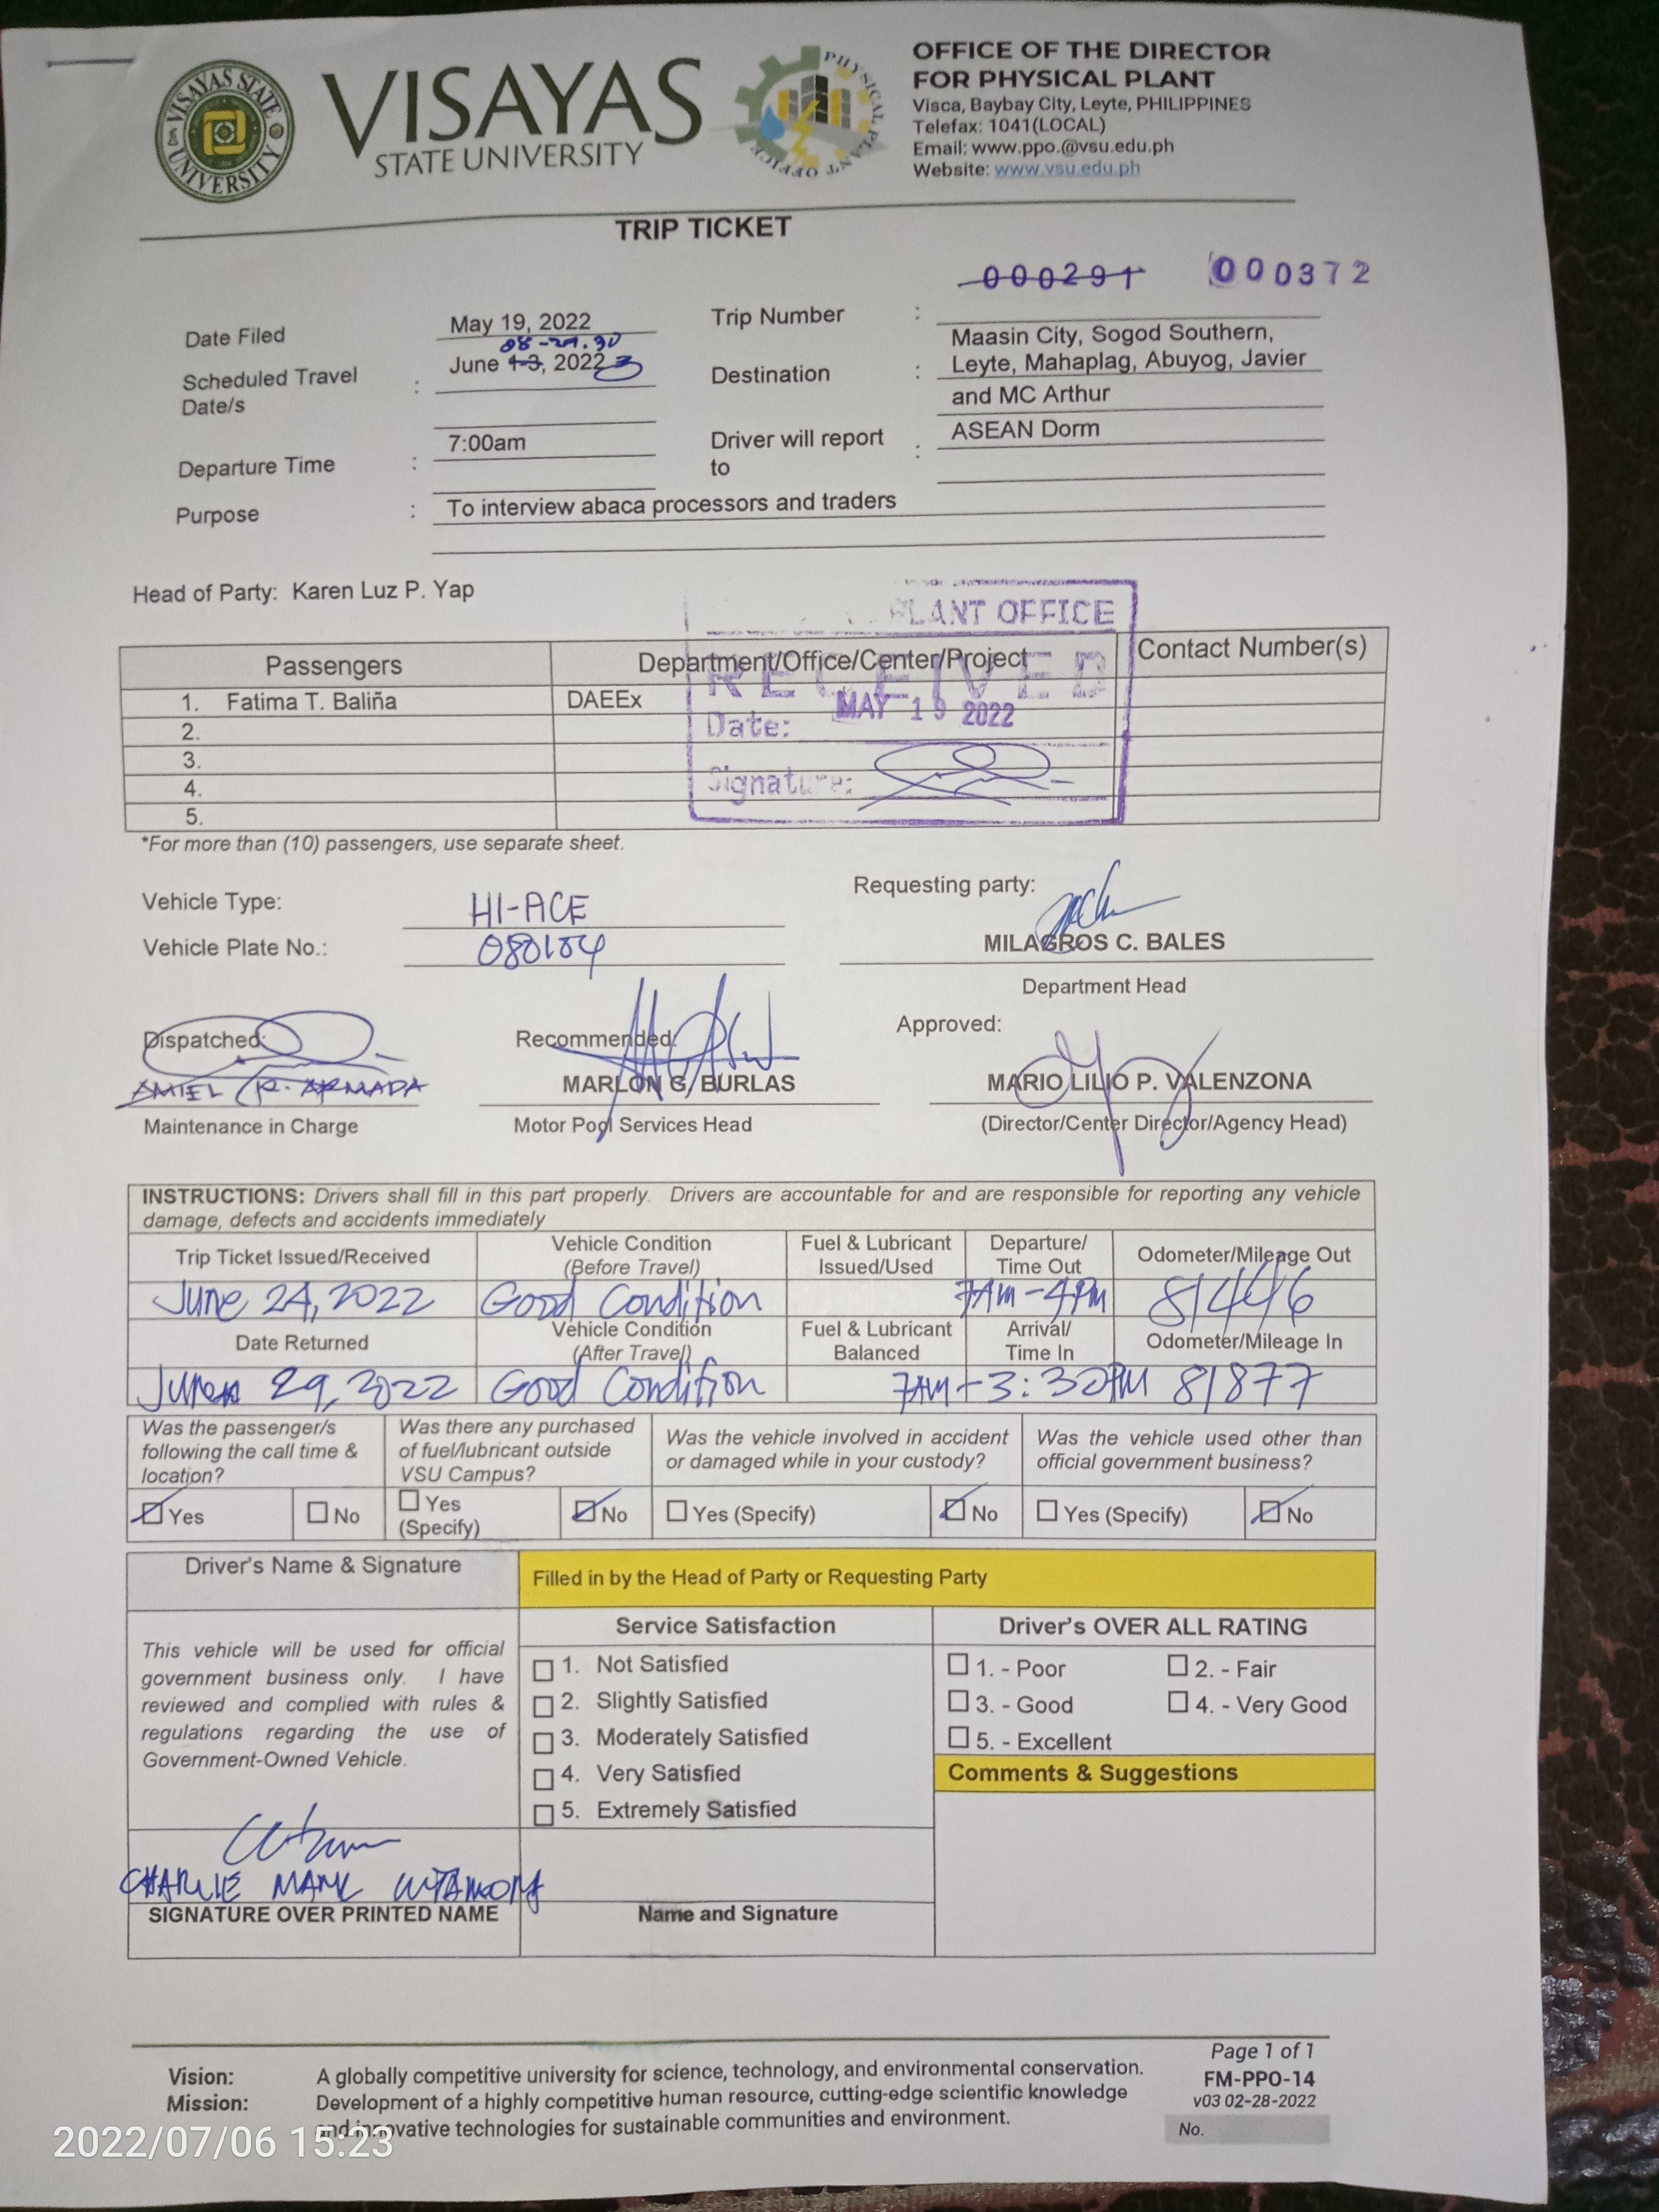 VISAYAS STATE UNIVERSITY
VISAYAS
STATE UNIVERSITY
PHYSICAL PLANT OFFICE
OFFICE OF THE DIRECTOR
FOR PHYSICAL PLANT
Visca, Baybay City, Leyte, PHILIPPINES
Telefax: 1041(LOCAL)
Email: www.ppo.@vsu.edu.ph
Website: www.vsu.edu.ph
TRIP TICKET
000291 000372
Date Filed May 19, 2022 Trip Number :
Scheduled Travel Date/s : June 1-3, 2022 3
Destination : Maasin City, Sogod Southern,
Leyte, Mahaplag, Abuyog, Javier
and MC Arthur
Departure Time : 7:00am Driver will report to : ASEAN Dorm
Purpose : To interview abaca processors and traders
Head of Party: Karen Luz P. Yap
PLANT OFFICE
RECEIVED
Date: MAY 19 2022
Signature:
Passengers Department/Office/Center/Project Contact Number(s)
1. Fatima T. Baliña DAEEx
2.
3.
4.
5.
*For more than (10) passengers, use separate sheet.
Vehicle Type: HI-ACE
Vehicle Plate No.: 080104
Requesting party:
MILAGROS C. BALES
Department Head
Dispatched: Recommended: Approved:
AMIEL R. ARMADA MARLON G. BURLAS MARIO LILIO P. VALENZONA
Maintenance in Charge Motor Pool Services Head (Director/Center Director/Agency Head)
INSTRUCTIONS: Drivers shall fill in this part properly. Drivers are accountable for and are responsible for reporting any vehicle
damage, defects and accidents immediately
Trip Ticket Issued/Received Vehicle Condition (Before Travel) Fuel & Lubricant Issued/Used Departure/ Time Out Odometer/Mileage Out
June 24, 2022 Good Condition 7AM-4PM 81446
Date Returned Vehicle Condition (After Travel) Fuel & Lubricant Balanced Arrival/ Time In Odometer/Mileage In
June 29, 2022 Good Condition 7AM-3:30PM 81877
Was the passenger/s following the call time & location? Was there any purchased of fuel/lubricant outside VSU Campus? Was the vehicle involved in accident or damaged while in your custody? Was the vehicle used other than official government business?
Yes No Yes (Specify) No Yes (Specify) No Yes (Specify) No
Driver's Name & Signature Filled in by the Head of Party or Requesting Party
This vehicle will be used for official
government business only. I have
reviewed and complied with rules &
regulations regarding the use of
Government-Owned Vehicle.
CHARLIE MARK
SIGNATURE OVER PRINTED NAME
Service Satisfaction
1. Not Satisfied
2. Slightly Satisfied
3. Moderately Satisfied
4. Very Satisfied
5. Extremely Satisfied
Name and Signature
Driver's OVER ALL RATING
1. - Poor 2. - Fair
3. - Good 4. - Very Good
5. - Excellent
Comments & Suggestions
Vision: A globally competitive university for science, technology, and environmental conservation.
Mission: Development of a highly competitive human resource, cutting-edge scientific knowledge
and innovative technologies for sustainable communities and environment.
Page 1 of 1
FM-PPO-14
v03 02-28-2022
No.
2022/07/06 15:23